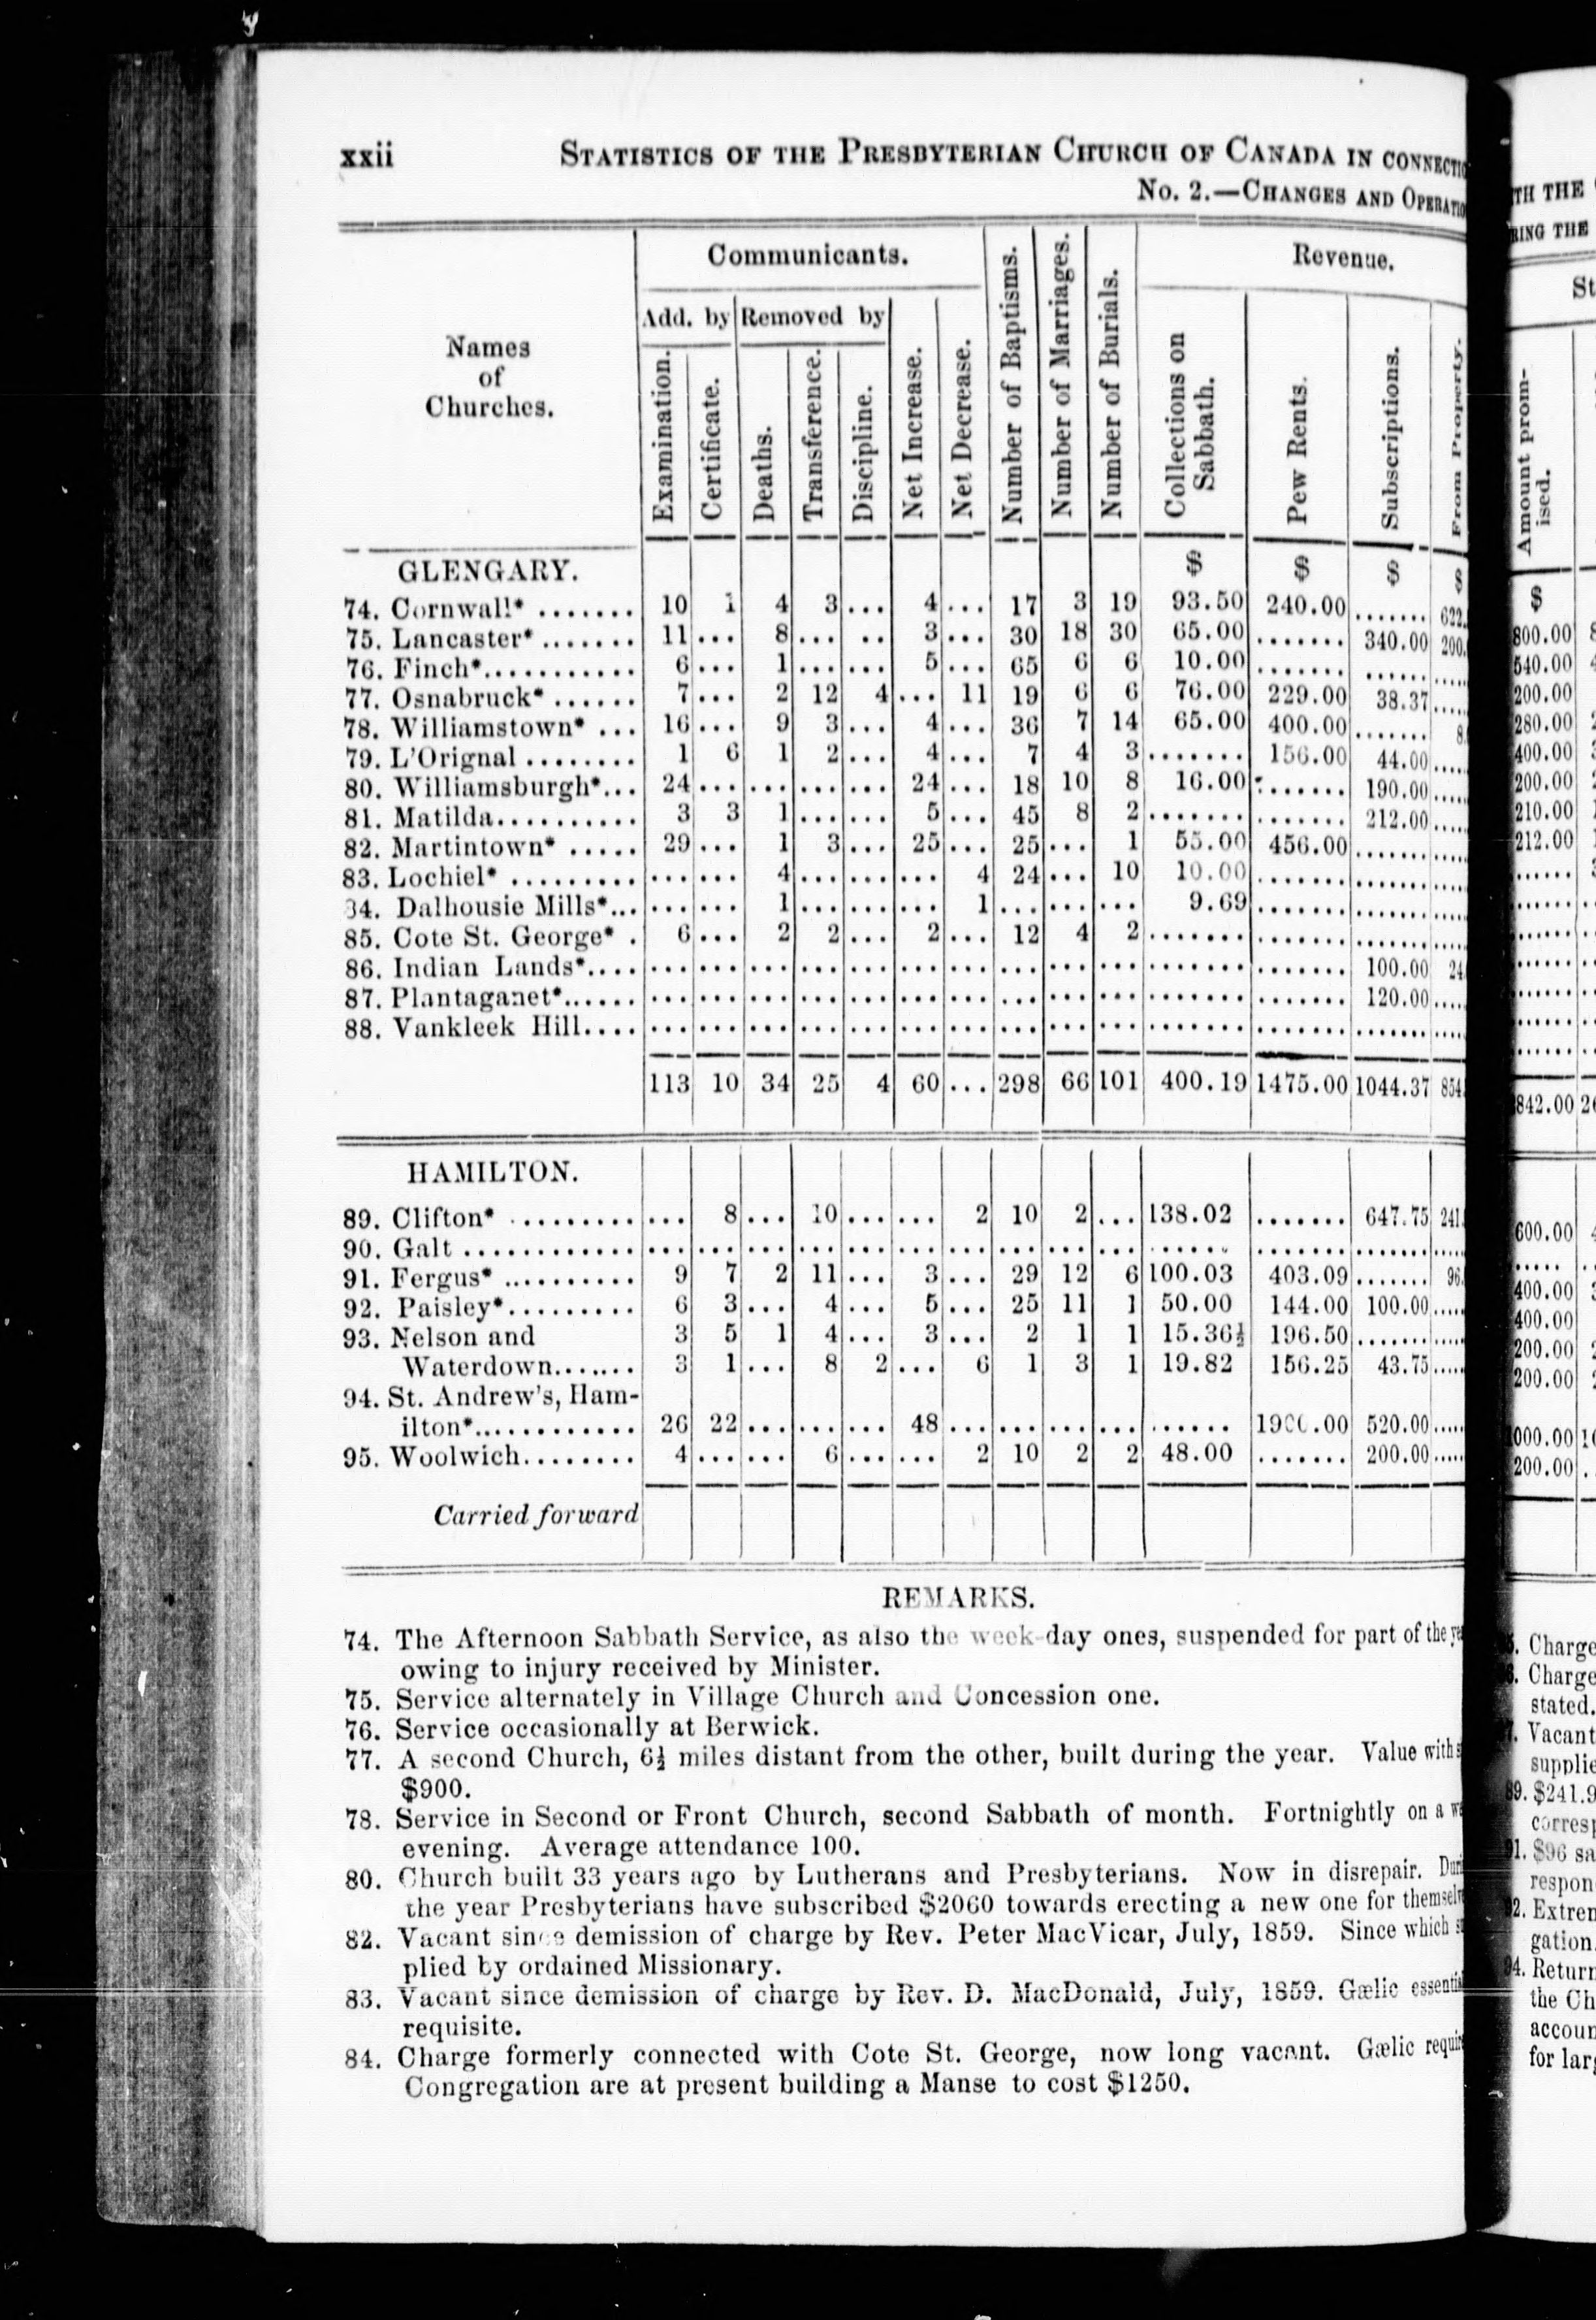 xxii STATISTICS OF THE PRESBYTERIAN CHURCH OF CANADA IN CONNECTIO
No. 2.—CHANGES AND OPERATIO
Names of Churches.
Communicants.
Add. by Removed by
Examination. Certificate. Deaths. Transference. Discipline. Net Increase. Net Decrease. Number of Baptisms. Number of Marriages. Number of Burials.
Revenue.
Collections on Sabbath. Pew Rents. Subscriptions. From Property.
GLENGARY. $ $ $ $
74. Cornwall* ....... 10 1 4 3 ... 4 ... 17 3 19 93.50 240.00 ....... 622.
75. Lancaster* ....... 11 ... 8 ... .. 3 ... 30 18 30 65.00 ....... 340.00 200.
76. Finch*........... 6 ... 1 ... ... 5 ... 65 6 6 10.00 ....... ...... .....
77. Osnabruck* ...... 7 ... 2 12 4 ... 11 19 6 6 76.00 229.00 38.37 .....
78. Williamstown* ... 16 ... 9 3 ... 4 ... 36 7 14 65.00 400.00 ....... 8.
79. L'Orignal ........ 1 6 1 2 ... 4 ... 7 4 3 ....... 156.00 44.00 .....
80. Williamsburgh*... 24 ... ... ... ... 24 ... 18 10 8 16.00 ....... 190.00 .....
81. Matilda.......... 3 3 1 ... ... 5 ... 45 8 2 ....... ....... 212.00 .....
82. Martintown* ..... 29 ... 1 3 ... 25 ... 25 ... 1 55.00 456.00 ....... .....
83. Lochiel* ......... ... ... 4 ... ... ... 4 24 ... 10 10.00 ....... ....... .....
34. Dalhousie Mills*... ... ... 1 ... ... ... 1 ... ... ... 9.69 ....... ....... .....
85. Cote St. George* . 6 ... 2 2 ... 2 ... 12 4 2 ....... ....... ....... .....
86. Indian Lands*.... ... ... ... ... ... ... ... ... ... ... ....... ....... 100.00 24.
87. Plantaganet*...... ... ... ... ... ... ... ... ... ... ... ....... ....... 120.00 .....
88. Vankleek Hill.... ... ... ... ... ... ... ... ... ... ... ....... ....... ....... .....
113 10 34 25 4 60 ... 298 66 101 400.19 1475.00 1044.37 854.
HAMILTON.
89. Clifton* ......... ... 8 ... 10 ... ... 2 10 2 ... 138.02 ....... 647.75 241.
90. Galt ............ ... ... ... ... ... ... ... ... ... ... ...... ....... ....... .....
91. Fergus* .......... 9 7 2 11 ... 3 ... 29 12 6 100.03 403.09 ....... 96.
92. Paisley*......... 6 3 ... 4 ... 5 ... 25 11 1 50.00 144.00 100.00 .....
93. Nelson and 3 5 1 4 ... 3 ... 2 1 1 15.36½ 196.50 ....... .....
Waterdown....... 3 1 ... 8 2 ... 6 1 3 1 19.82 156.25 43.75 .....
94. St. Andrew's, Ham-
ilton*............ 26 22 ... ... ... 48 ... ... ... ... ...... 520.00 .....
95. Woolwich........ 4 ... ... 6 ... ... 2 10 2 2 48.00 ....... 200.00 .....
Carried forward
REMARKS.
74. The Afternoon Sabbath Service, as also the week-day ones, suspended for part of the ye
owing to injury received by Minister.
75. Service alternately in Village Church and Concession one.
76. Service occasionally at Berwick.
77. A second Church, 6½ miles distant from the other, built during the year. Value with s
$900.
78. Service in Second or Front Church, second Sabbath of month. Fortnightly on a we
evening. Average attendance 100.
80. Church built 33 years ago by Lutherans and Presbyterians. Now in disrepair. Duri
the year Presbyterians have subscribed $2060 towards erecting a new one for themselv
82. Vacant since demission of charge by Rev. Peter MacVicar, July, 1859. Since which su
plied by ordained Missionary.
83. Vacant since demission of charge by Rev. D. MacDonald, July, 1859. Gælic essential
requisite.
84. Charge formerly connected with Cote St. George, now long vacant. Gælic requir
Congregation are at present building a Manse to cost $1250.
TH THE
RING THE
St
Amount prom-
ised.
$
800.00
540.00
200.00
280.00
400.00
200.00
210.00
212.00
842.00
600.00
400.00
400.00
200.00
200.00
000.00
200.00
Charge
Charge
stated.
Vacant
supplie
89. $241.9
corresp
91. $96 sa
respon
92. Extrem
gation.
94. Return
the Ch
accoun
for larg